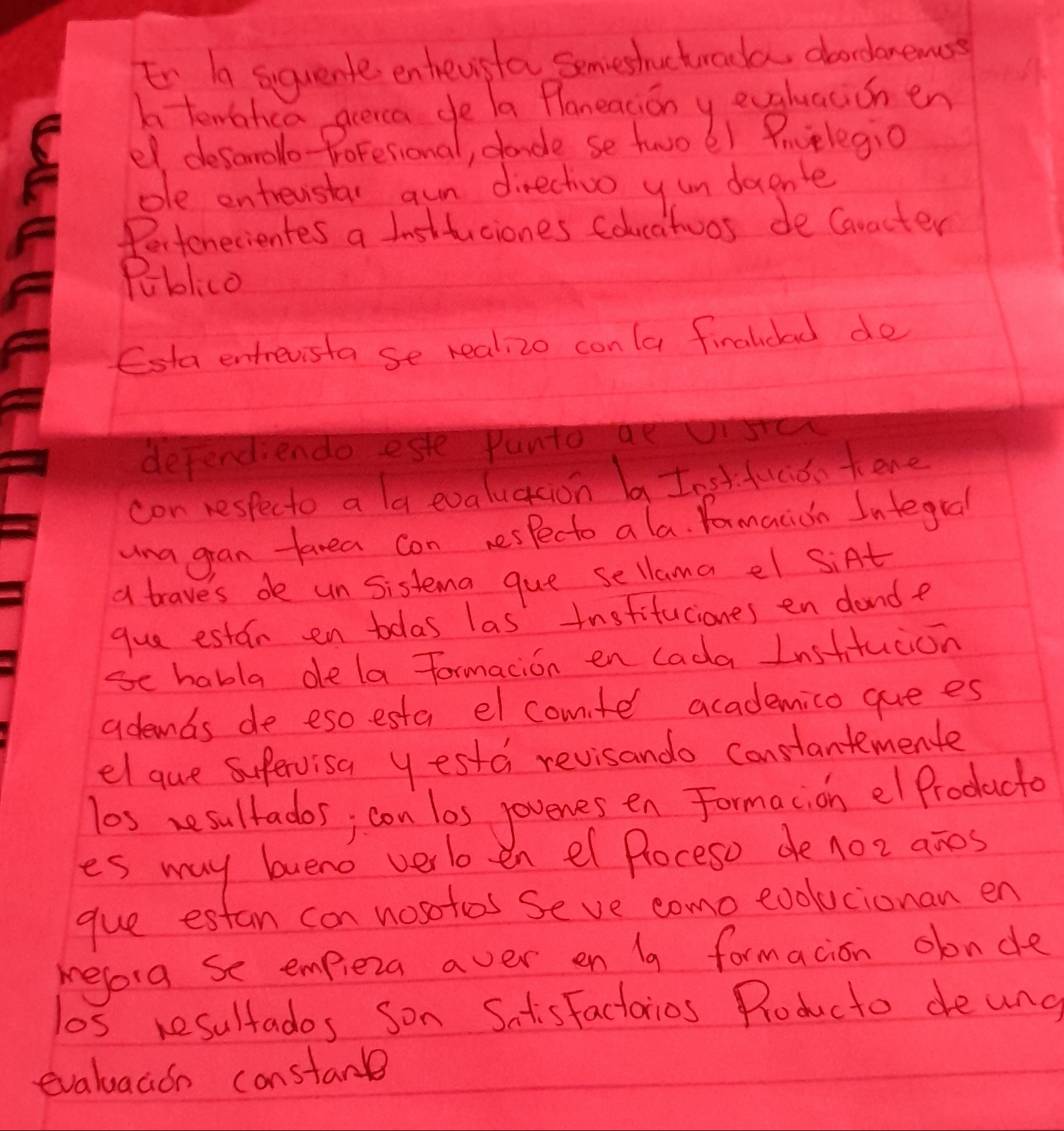 En la siguiente entrevista Semiestructurada abordaremos
la temática acerca de la Planeación y evaluación en
el desarrollo Profesional, donde se tuvo el Privelegio
de entrevistar aun directivo y un docente
Pertenecientes a Instituciones Educativos de Caracter
Público
Esta entrevista se realizo con la finalidad de
defendiendo este Punto de vista
con respecto a la evaluación la Institución tiene
una gran tarea con respecto a la formación Integral
a través de un Sistema que se llama el SiAt
que están en todas las Instituciones en donde
se habla de la Formación en cada Institución
además de eso esta el comité academico que es
el que Supervisa y está revisando constantemente
los resultados; con los jovenes en Formación el Producto
es muy bueno verlo en el Proceso de 1 o 2 años
que estan con nosotros Se ve como evolucionan en
mejora se empieza aver en la formación donde
los resultados son Satisfactorios Producto de una
evaluación constante